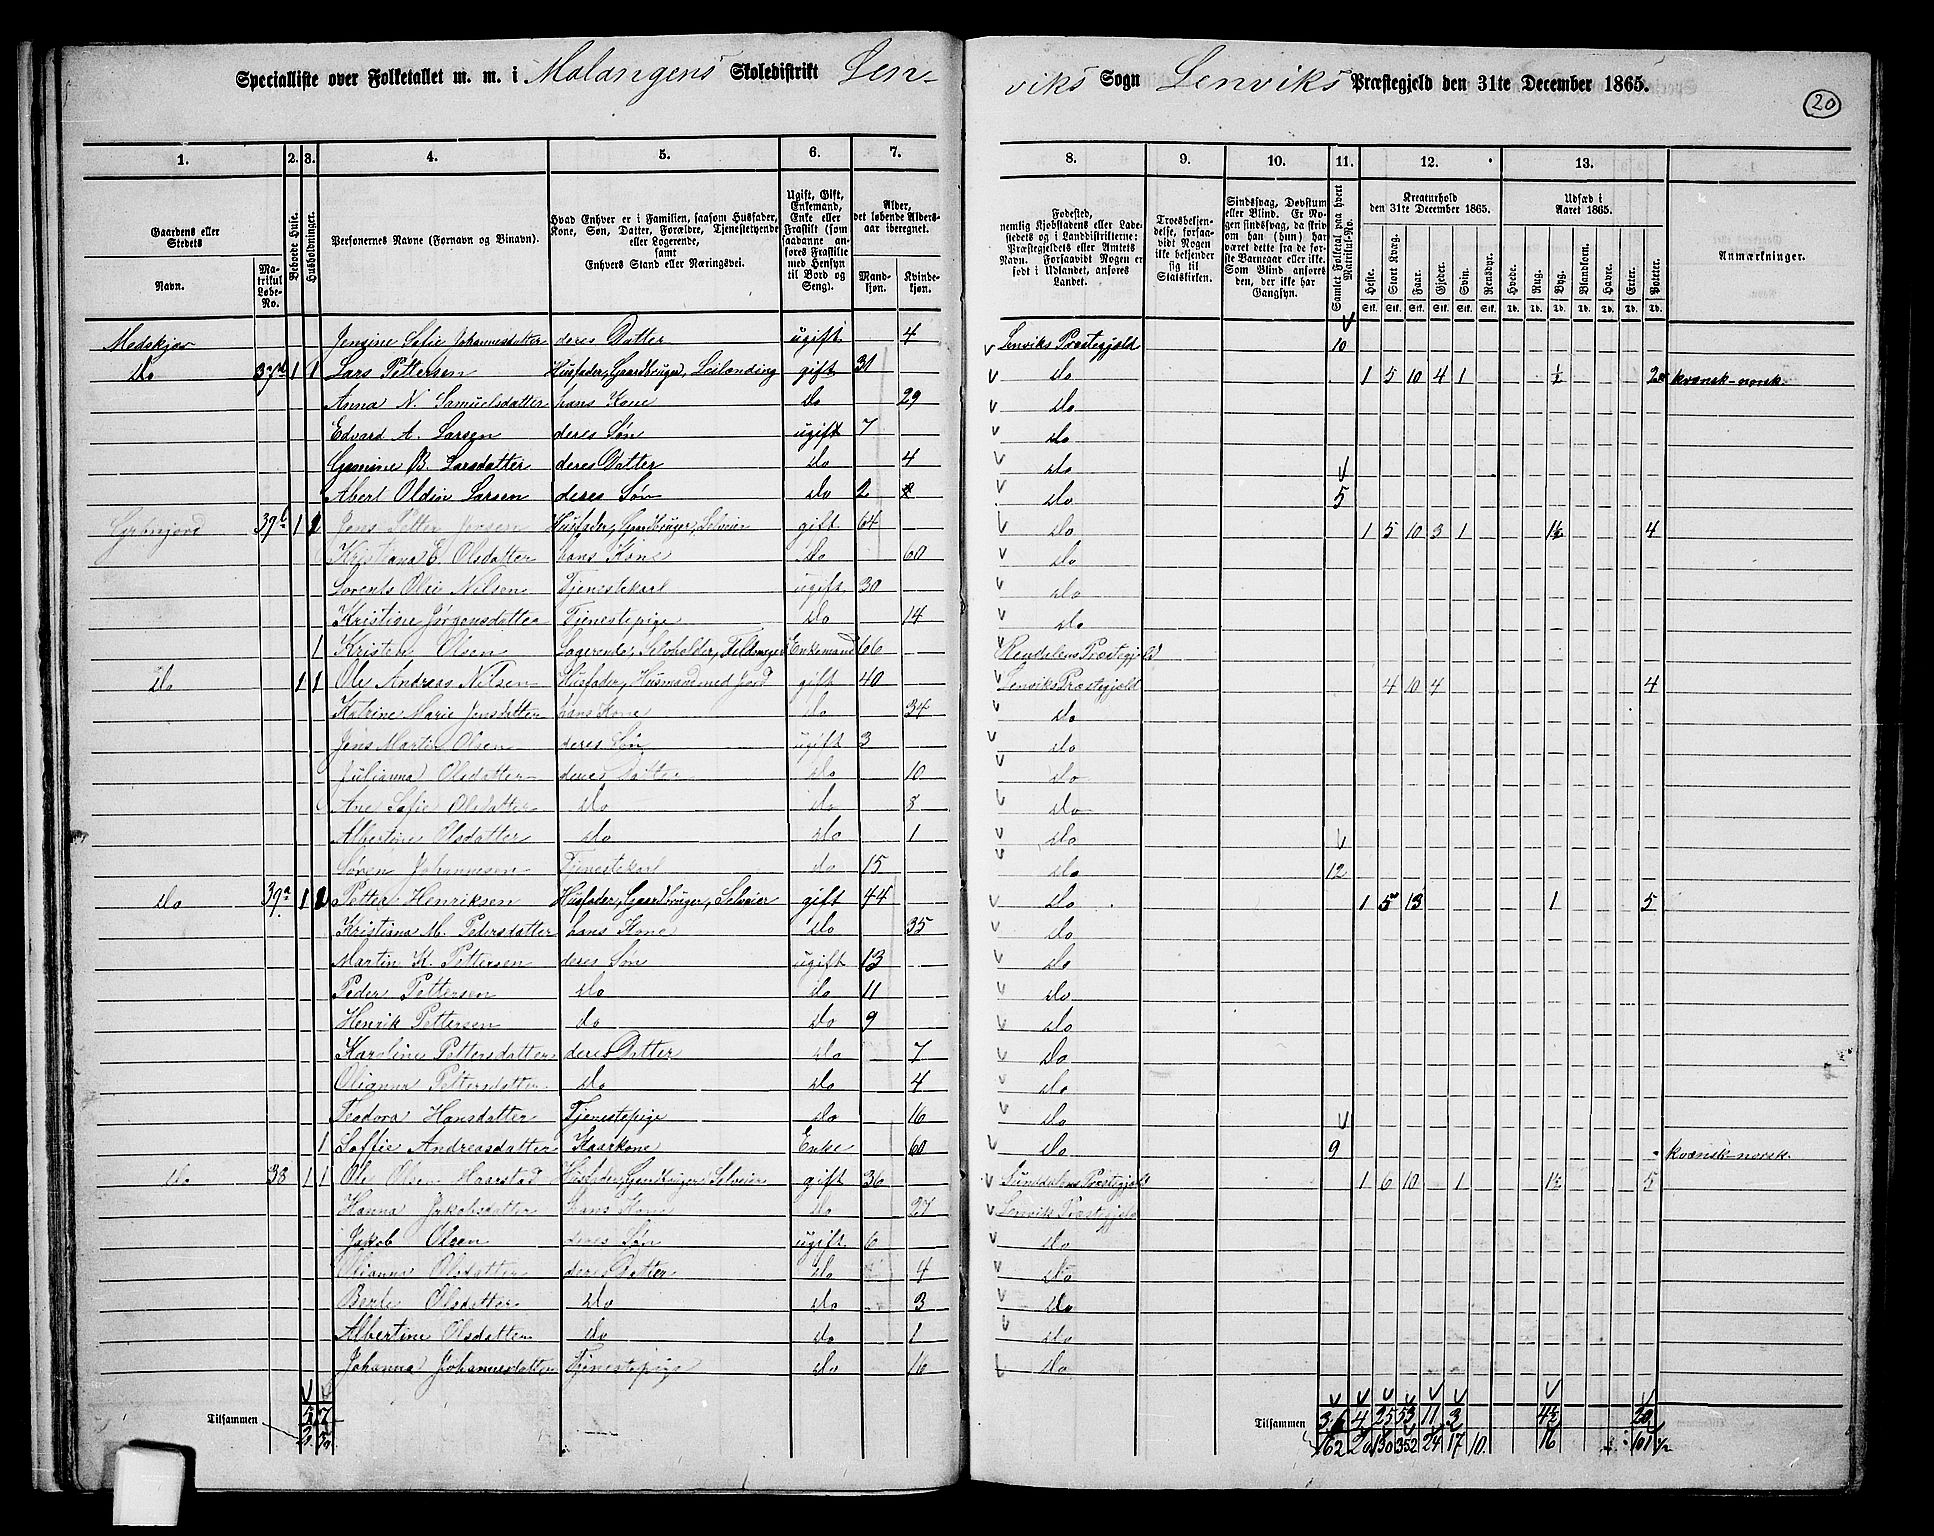 Specialliste over Folketallet m. m. i Malangens Skoledistrikt Lenviks Sogn Lenviks Præstegjeld den 31te December 1865.
20
1. 2. 3. 4. 5. 6. 7. 8. 9. 10. 11. 12. 13.
Gaardens eller Stedets Navn.
Matrikul Løbe-No.
Beboede Huse.
Husholdninger.
Personernes Navne (Fornavn og Binavn).
Hvad Enhver er i Familien, saasom Husfader, Kone, Søn, Datter, Forældre, Tjenestetyende eller Logerende, samt Enhvers Stand eller Næringsvei.
Ugift, Gift, Enkemand, Enke eller Fraskilt (som saadanne anføres Fraskilte med Hensyn til Bord og Seng).
Alder, det løbende Aldersaar iberegnet.
Mandkjøn. Kvindekjøn.
Fødested, nemlig Kjøbstadens eller Ladestedets og i Landdistrikterne: Præstegjeldets eller Amtets Navn. Forsaavidt Nogen er født i Udlandet, anføres Landet.
Troesbekjendelse, forsaavidt Nogen ikke bekjender sig til Statskirken.
Sindssvag, Døvstum eller Blind. Er Nogen sindssvag, da skrives om han (hun) har været dette fra de første Barneaar eller ikke. Som Blind anføres den, der ikke har Gangsyn.
Samlet Folketal paa hvert Matrikul-No.
Kreaturhold den 31te December 1865.
Heste. Stort Kvæg. Faar. Gjeder. Svin. Rensdyr.
Udsæd i Aaret 1865.
Hvede. Rug. Byg. Blandkorn. Havre. Erter. Poteter.
Anmærkninger.
Medskjær Jensine Sofie Johannesdatter deres Datter ugift 4 Lenviks Præstegjeld 10
do 37d 1 1 Lars Pettersen Husfader, Gaardbruger, Leilænding gift 31 do 1 5 10 4 1 ½ kvænsk-norsk
Anna N. Samuelsdatter hans Kone do 29 do
Edvard A. Larsen deres Søn ugift 7 do
B. Larsdatter deres Datter do 4 do
Abert Oldin Larsen deres Søn do 2 do 5
39b 1 1 Jens Petter Jensen Husfader, Gaardbruger, Selveier gift 64 do 1 5 10 3 1 1½ 4
Kristiana E. Olsdatter hans Kone do 60 do
Lorents Olai Nilsen Tjenestekarl ugift 30 do
Kristine Jørgensdatter Tjenestepige do 14 do
1 Kristen Olsen Logerende, Enkemand 66 Rendalens Præstegjeld
do 1 1 Ole Andreas Nilsen Husfader, Husmand med Jord gift 40 Lenviks Præstegjeld 4 10 4 4
Katrine Marie Jensdatter hans Kone do 34 do
Jens Martin Olsen deres Søn ugift 3 do
Julianna Olsdatter deres Datter do 10 do
Ane Sofie Olsdatter do do 8 do
Albertine Olsdatter do do 1 do
Søren Johannesen Tjenestekarl do 15 do 12
do 39a 1 1 Petter Henriksen Husfader, Gaardbruger, Selveier gift 44 do 1 5 13 1 5
Kristiana M. Pedersdatter hans Kone do 35 do
Martin K. Pettersen deres Søn ugift 13 do
Peder Pettersen do do 11 do
Henrik Pettersen do do 9 do
Karoline Pettersdatter deres Datter do 7 do
Olianna Pettersdatter do do 4 do
Teodora Hansdatter Tjenestepige do 16 do
1 Soffie Andreasdatter Kaarkone Enke 60 do 9 kvænsk-norsk.
do 38 1 1 Ole Olsen Haarstad Husfader, Gaardbruger, Selveier gift 36 Sunddalens Præstegjeld 1 6 10 1 1½ 5
Hanna Jakobsdatter hans Kone do 27 Lenviks Præstegjeld
Jakob Olsen deres Søn ugift 6 do
Olianna Olsdatter deres Datter do 4 do
Berte Olsdatter do do 3 do
Albertine Olsdatter do do 1 do
Johanna Johannesdatter Tjenestepige do 16 do
Tilsammen 5 7 Tilsammen 36 4 25 53 11 3 4½ 20
162 20 130 352 24 17 10 16 101